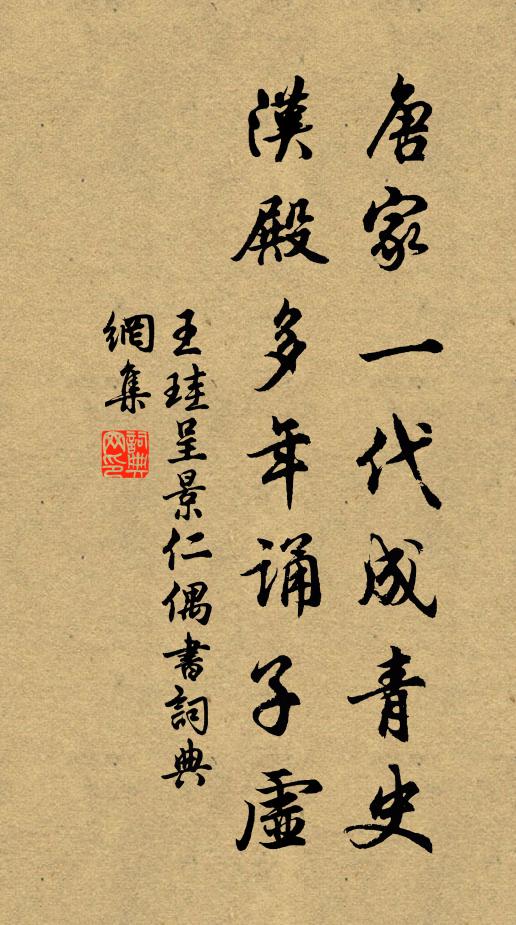 唐家一代成青史
漢殿多年诵子虛
王珪呈景仁偶書詞典
網集
詞典
网印